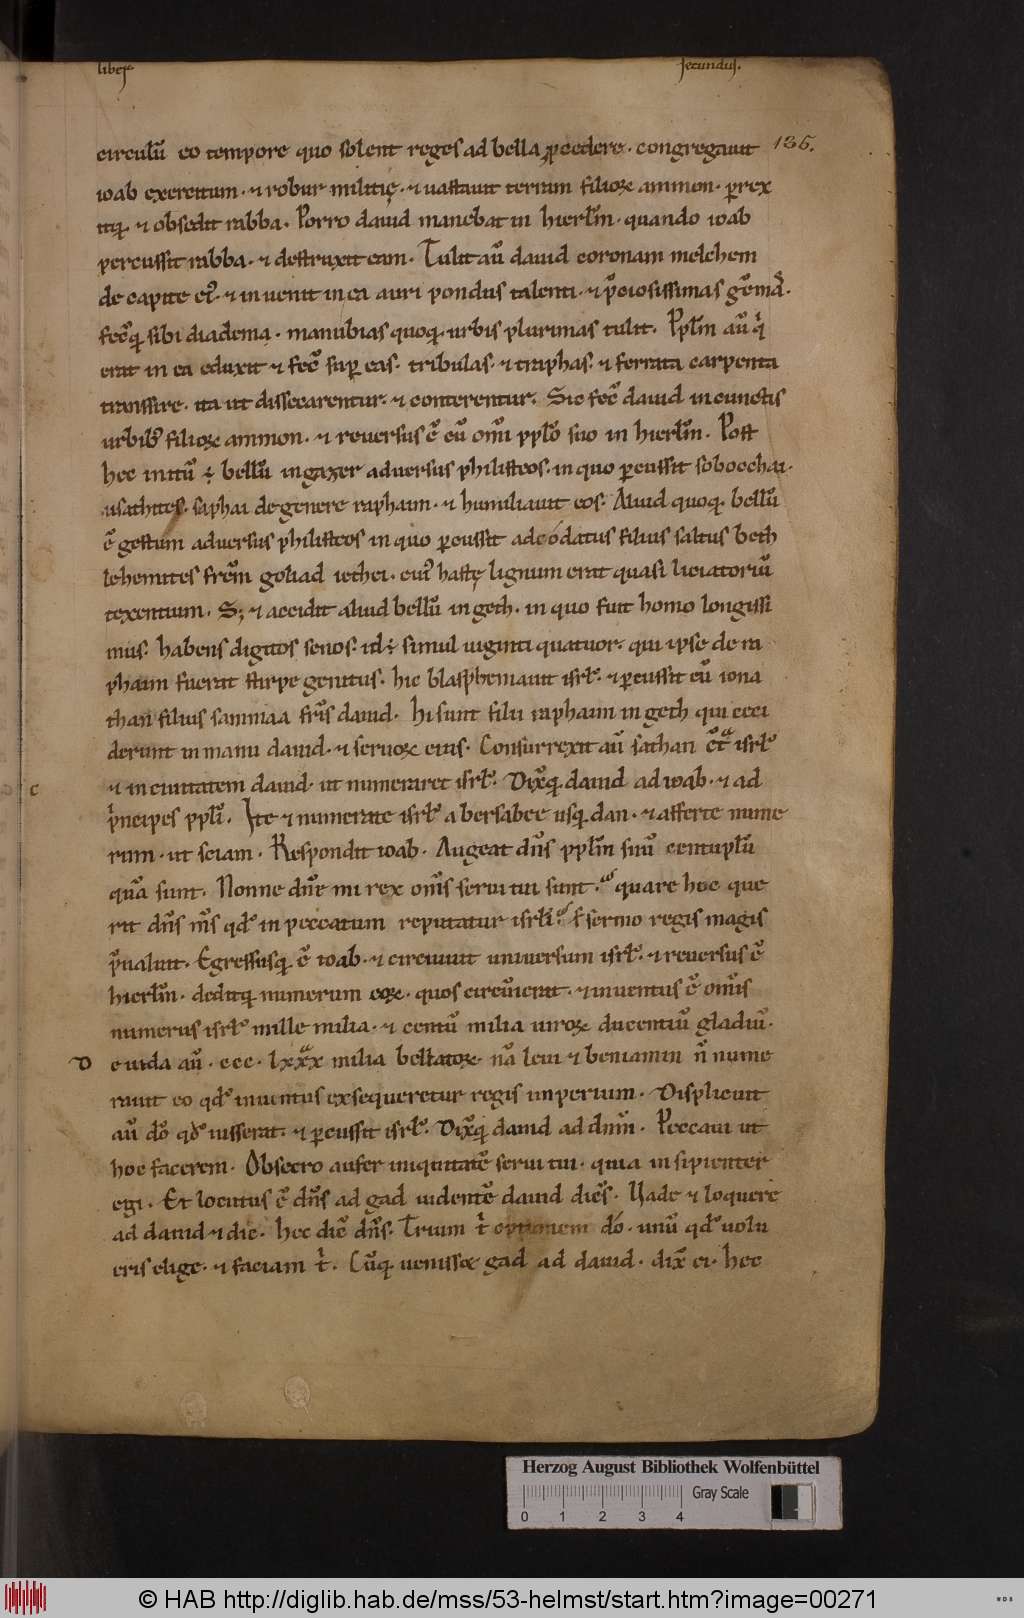 liber secundus.
135.
circulū eo tempore quo solent reges ad bella ꝓcedere · congregauit
ioab exercitum · ⁊ robur militię · ⁊ uastauit terram filioꝝ ammon · ꝑrex
itq; ⁊ obsedit rabba . Porro dauid manebat in hierl̄m · quando ioab
percussit rabba · ⁊ destruxit eam . Tulit aū dauid coronam melchem
de capite ei᾽ · ⁊ inuenit in ea auri pondus talenti · ⁊ p̄ciosissimas gēmas .
fecitq; sibi diadema . manubias quoq; urbis plurimas tulit . Ppl̄m aū q̇
erat in ea eduxit ⁊ fec̄ suꝑ eas . tribulas · ⁊ traphas · ⁊ ferrata carpenta
transire . ita ut dissecarentur . ⁊ contererentur . Sic fec̄ dauid in cunctis
urbib; filioꝝ ammon . ⁊ reuersus ē cū om̄i ppl̄o suo in hierl̄m . Post
hec initū ÷ bellū in gazer aduersus philisteos · in quo ꝑcussit sobocchai ·
usathites · saphai de genere raphaim · ⁊ humiliauit eos . Aliud quoq; bellū
ē gestum aduersus philisteos in quo ꝑcussit adeodatus filius saltus beth
lehemites frēm goliad iethei . cui᾽ hastę lignum erat quasi liciatoriū
texentium . S; ⁊ accidit aliud bellū in geth · in quo fuit homo longissi
mus . habens digitos senos · id ÷ simul uiginti quatuor · qui ipse de ra
phaim fuerat stirpe genitus . hic blasphemauit isrl̄ . ⁊ ꝑcussit eū iona
than filius sammaa fr̄is dauid . Hi sunt filii raphaim in geth qui ceci
derunt in manu dauid · ⁊ seruoꝝ eius . Consurrexit aū sathan cͣt̄ isrl̄
c
⁊ in ciuitatem dauid · ut numeraret isrl̄ . Dix̄q; dauid ad ioab · ⁊ ad
ṗncipes ppl̄i . Ite ⁊ numerate isrl̄ a bersabee usq; dan · ⁊ afferte nume
rum · ut sciam . Respondit ioab . Augeat dn̄s ppl̄m suū centuplū
quā sunt . Nonne dn̄e mi rex om̄s serui tui sunt . quare hoc que
rit dn̄s m̄s qd̄ in peccatum reputatur isrl̄i . S; sermo regis magis
p̄ualuit . Egressusq; ē ioab · ⁊ circuiuit uniuersum isrl̄ · ⁊ reuersus ē
hierl̄m . deditq; numerum eoꝝ · quos circūierat · ⁊ inuentus ē om̄is
numerus isrl̄ mille milia · ⁊ centū milia uiroꝝ ducentiū gladiū .
D
e iuda aū · ccc · lxxͣx milia bellatoꝝ . nā leui ⁊ beniamin n̄ nume
rauit eo qd̄ inuitus exsequeretur regis imperium . Displicuit
aū dō qd̄ iusserat · ⁊ ꝑcussit isrl̄ . Dix̄q; dauid ad dn̄m . Peccaui ut
hoc facerem . Obsecro aufer iniquitatē serui tui · quia insipienter
egi . Et locutus ē dn̄s ad gad uidentē dauid dicēs . Uade ⁊ loquere
ad dauid ⁊ dic . hec dic̄ dn̄s . Trium t̍ optionem dō · unū qd̄ uolu
eris elige · ⁊ faciam t̍ . Cūq; uenisset gad ad dauid · dix̄ ei · hec
Herzog August Bibliothek Wolfenbüttel
Gray Scale
0 1 2 3 4
© HAB http://diglib.hab.de/mss/53-helmst/start.htm?image=00271